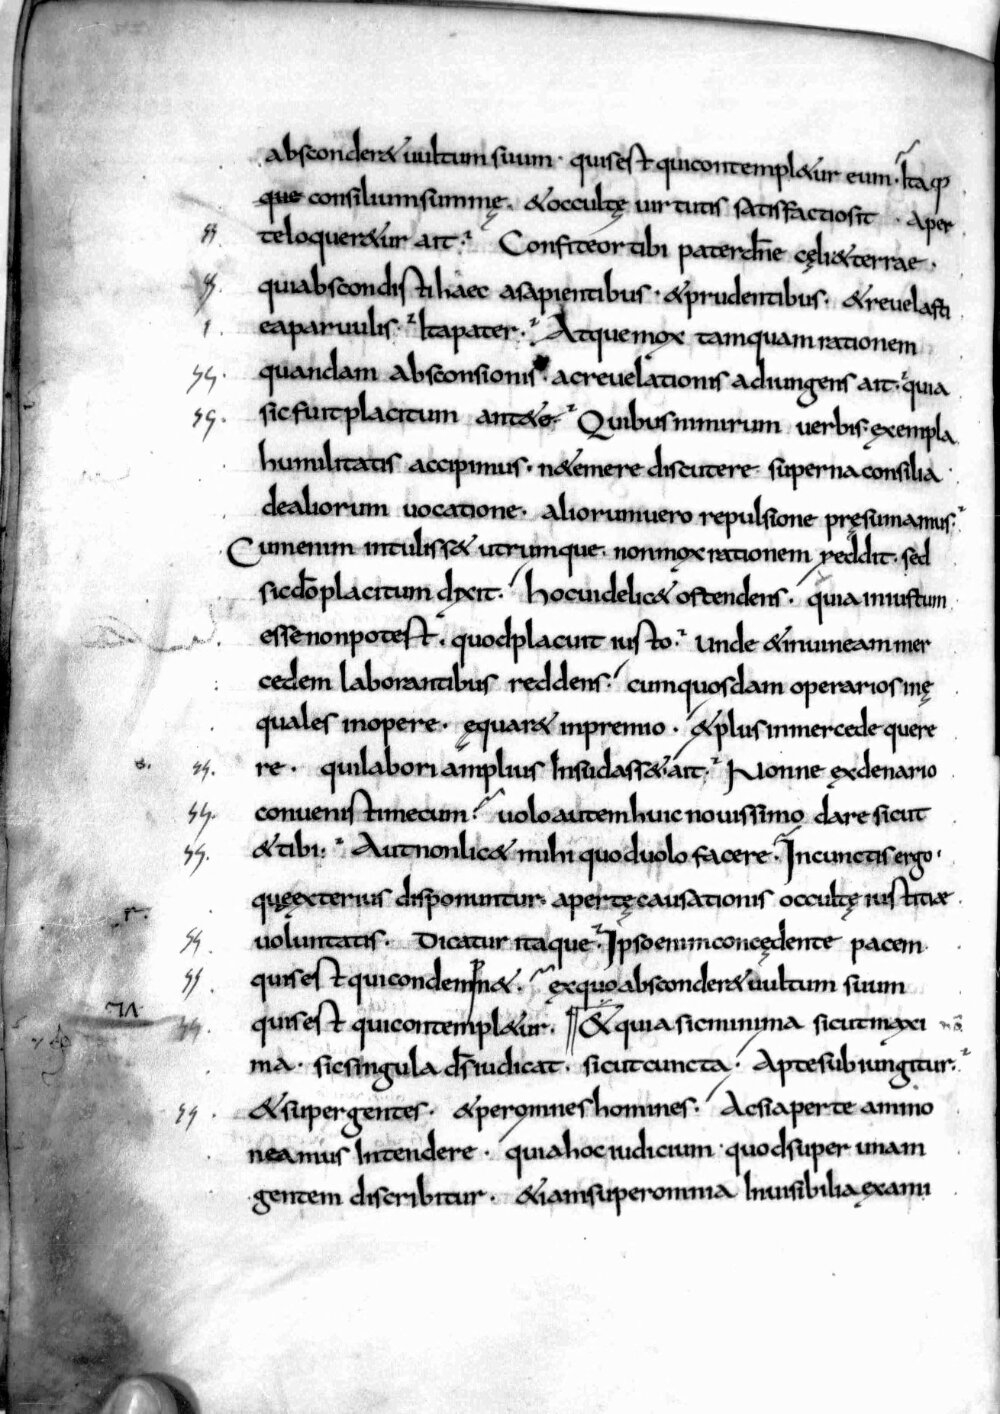 absconderet uultum suum · quis est qui contempletur eum · Itaq;
que consilium summę · & occultę uirtutis satisfactio sit · aper
te loqueretur ait · Confiteor tibi pater dn̄e cęli & terrae ·
qui abscondisti haec a sapientibus · & prudentibus · & reuelasti
ea paruulis · Ita pater · Atque mox tamquam rationem
quandam absconsionis · ac reuelationis adiungens ait · quia
sic fuit placitum ante · Quibus nimirum uerbis exempla
humilitatis accipimus · ne temere discutere superna consilia
de aliorum uocatione · aliorum uero repulsione pręsumamus ·
Cum enim intulisset utrumque · non mox rationem reddit · sed
sic dō placitum dixit · hoc uidelicet ostendens · quia iniustum
esse non potest · quod placuit iusto · Unde & in uinea mer
cedem laborantibus reddens · cum quosdam operarios inę
quales in opere · ęquaret in premio · & plus in mercede quere
re · qui labori amplius insudasset · ait · Nonne ex denario
conuenisti mecum · uolo autem huic nouissimo dare sicut
& tibi · Aut non licet mihi quod uolo facere · In cunctis ergo ·
quę exterius disponuntur · apertę causationis occultę iustitiae
uoluntatis · Dicatur itaque · Ipso enim concędente pacem
quis est qui condemnet · ex quo absconderet uultum suum
quis est qui contempletur · & quia sic minima sicut maxi
ma · sic singula ds̄ iudicat · sicut cuncta · Apte subiungitur ·
& super gentes · & per omnes homines · Ac si aperte ammo
neamus intendere · quia hoc iudicium quod super unam
gentem discribitur · etiam super omnia inuisibilia exami